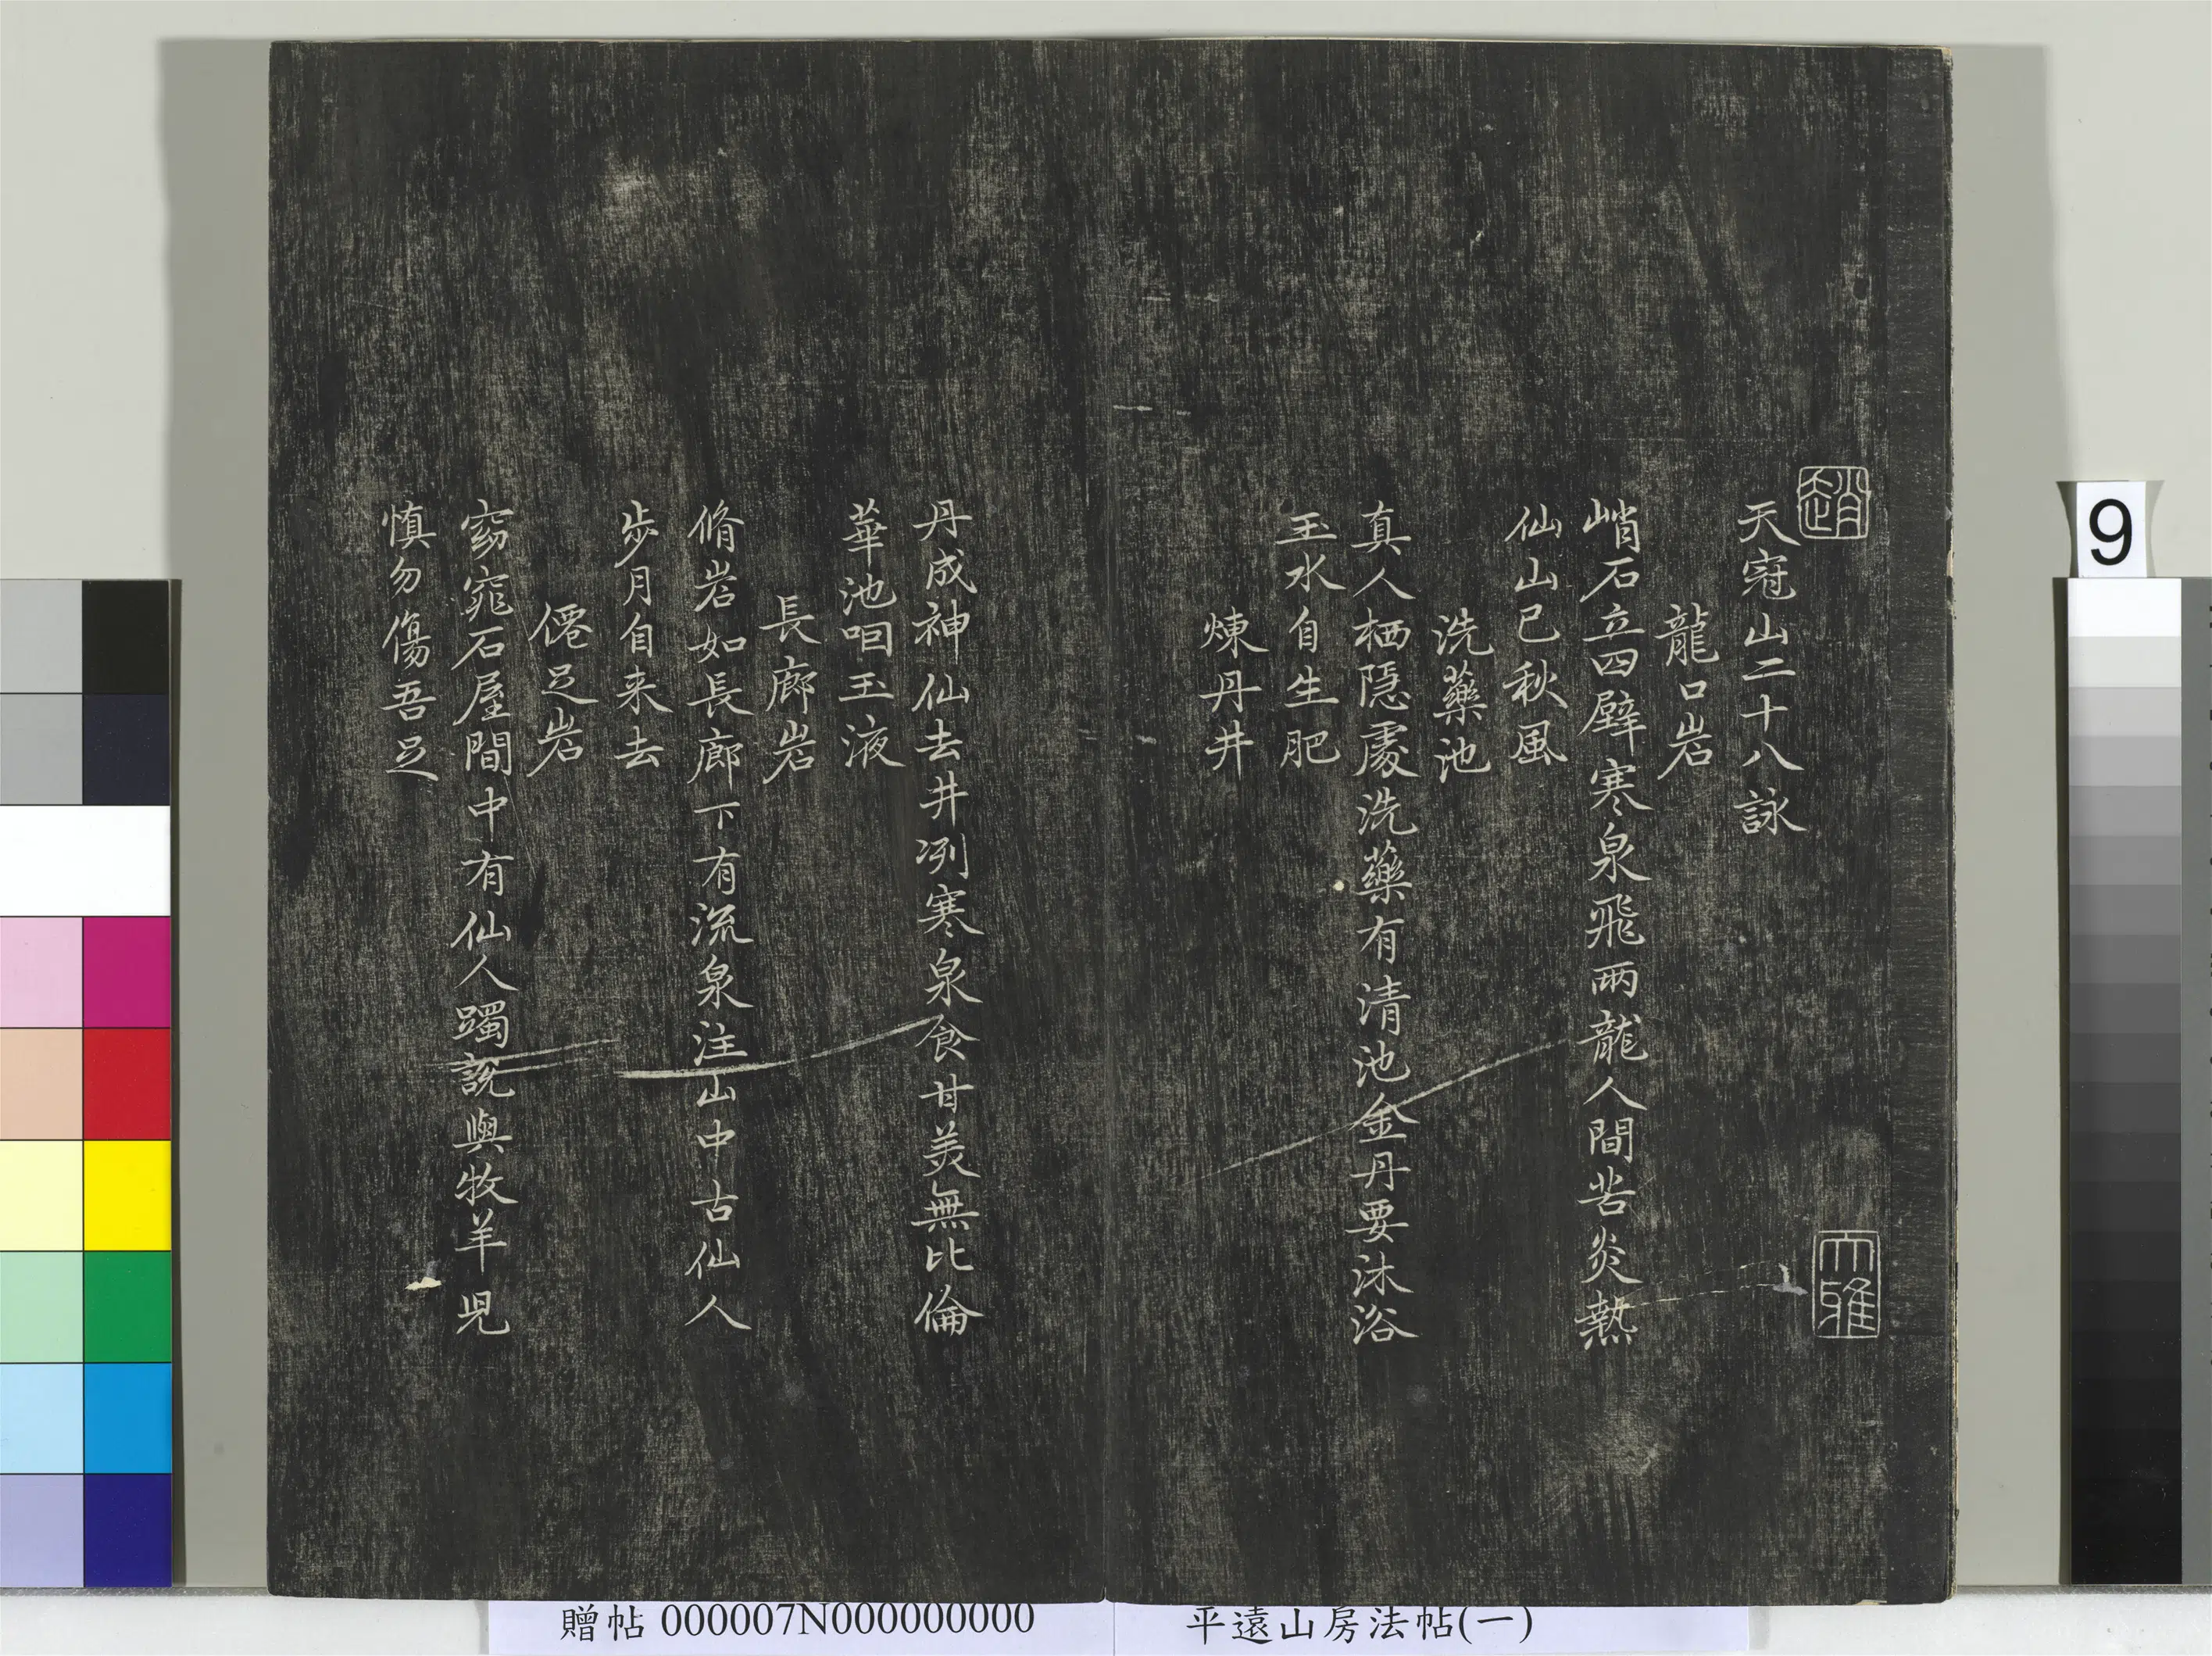 趙
大雅
天冠山二十八詠
龍口岩
峭石立四壁寒泉飛兩龍人間苦炎熱
仙山已秋風
洗藥池
真人栖隱處洗藥有清池金丹要沐浴
玉水自生肥
煉丹井
丹成神仙去井冽寒泉食甘美無比倫
華池咽玉液
長廊岩
脩岩如長廊下有流泉注山中古仙人
步月自来去
僊足岩
窈窕石屋間中有仙人躅說與牧羊児
慎勿傷吾足
9
贈帖 000007N000000000
平遠山房法帖(一)